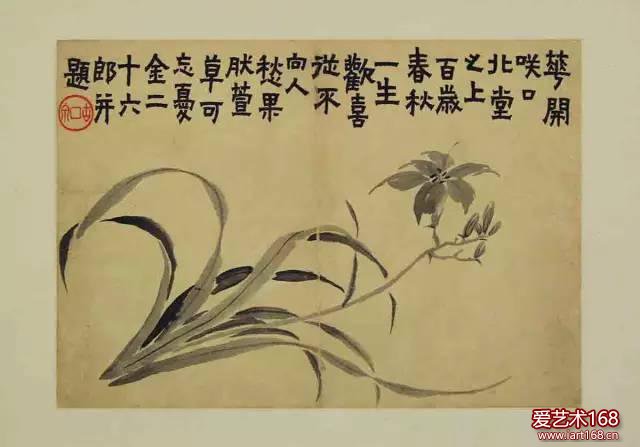 華開
咲口
北堂
之上
百歲
春秋
一生
歡喜
從不
向人
愁果
肰萱
草可
忘憂
金二
十六
郎并
題
爱艺术168
www.iart168.cn